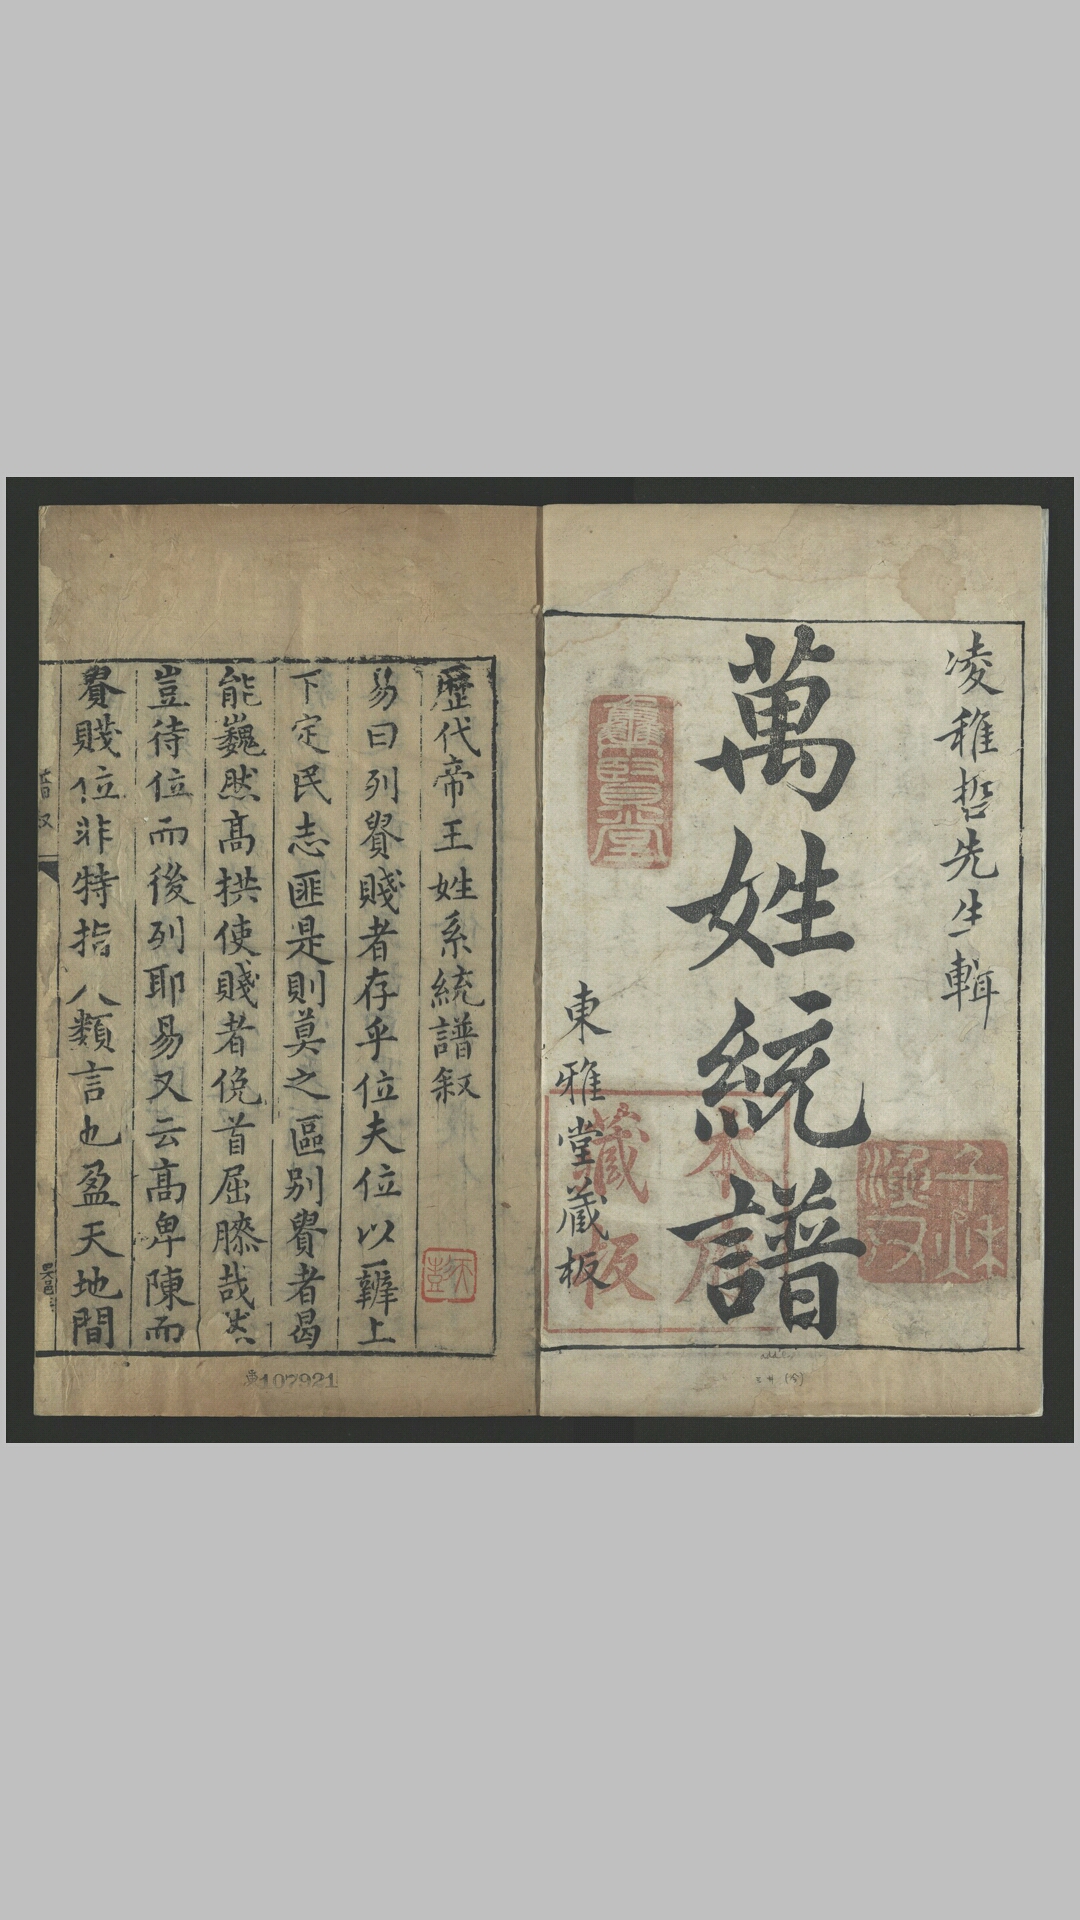 凌稚哲先生輯
萬姓統譜
東雅堂蔵板
本
藏板
歷代帝王姓系統譜叙
易曰列貴賤者存乎位夫位以辨上
下定民志匪是則莫之區别貴者曷
能巍然髙拱使賤者俛首屈膝哉然
豈待位而後列耶易又云髙卑陳而
貴賤位非特指人類言也盈天地間
107921